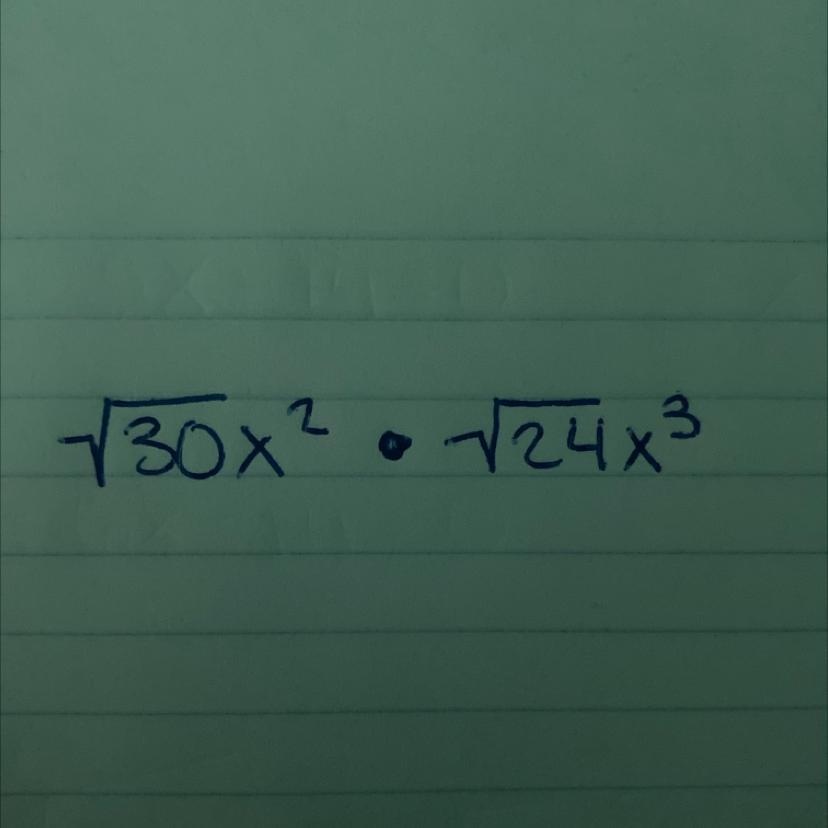 √30x² • √24x³